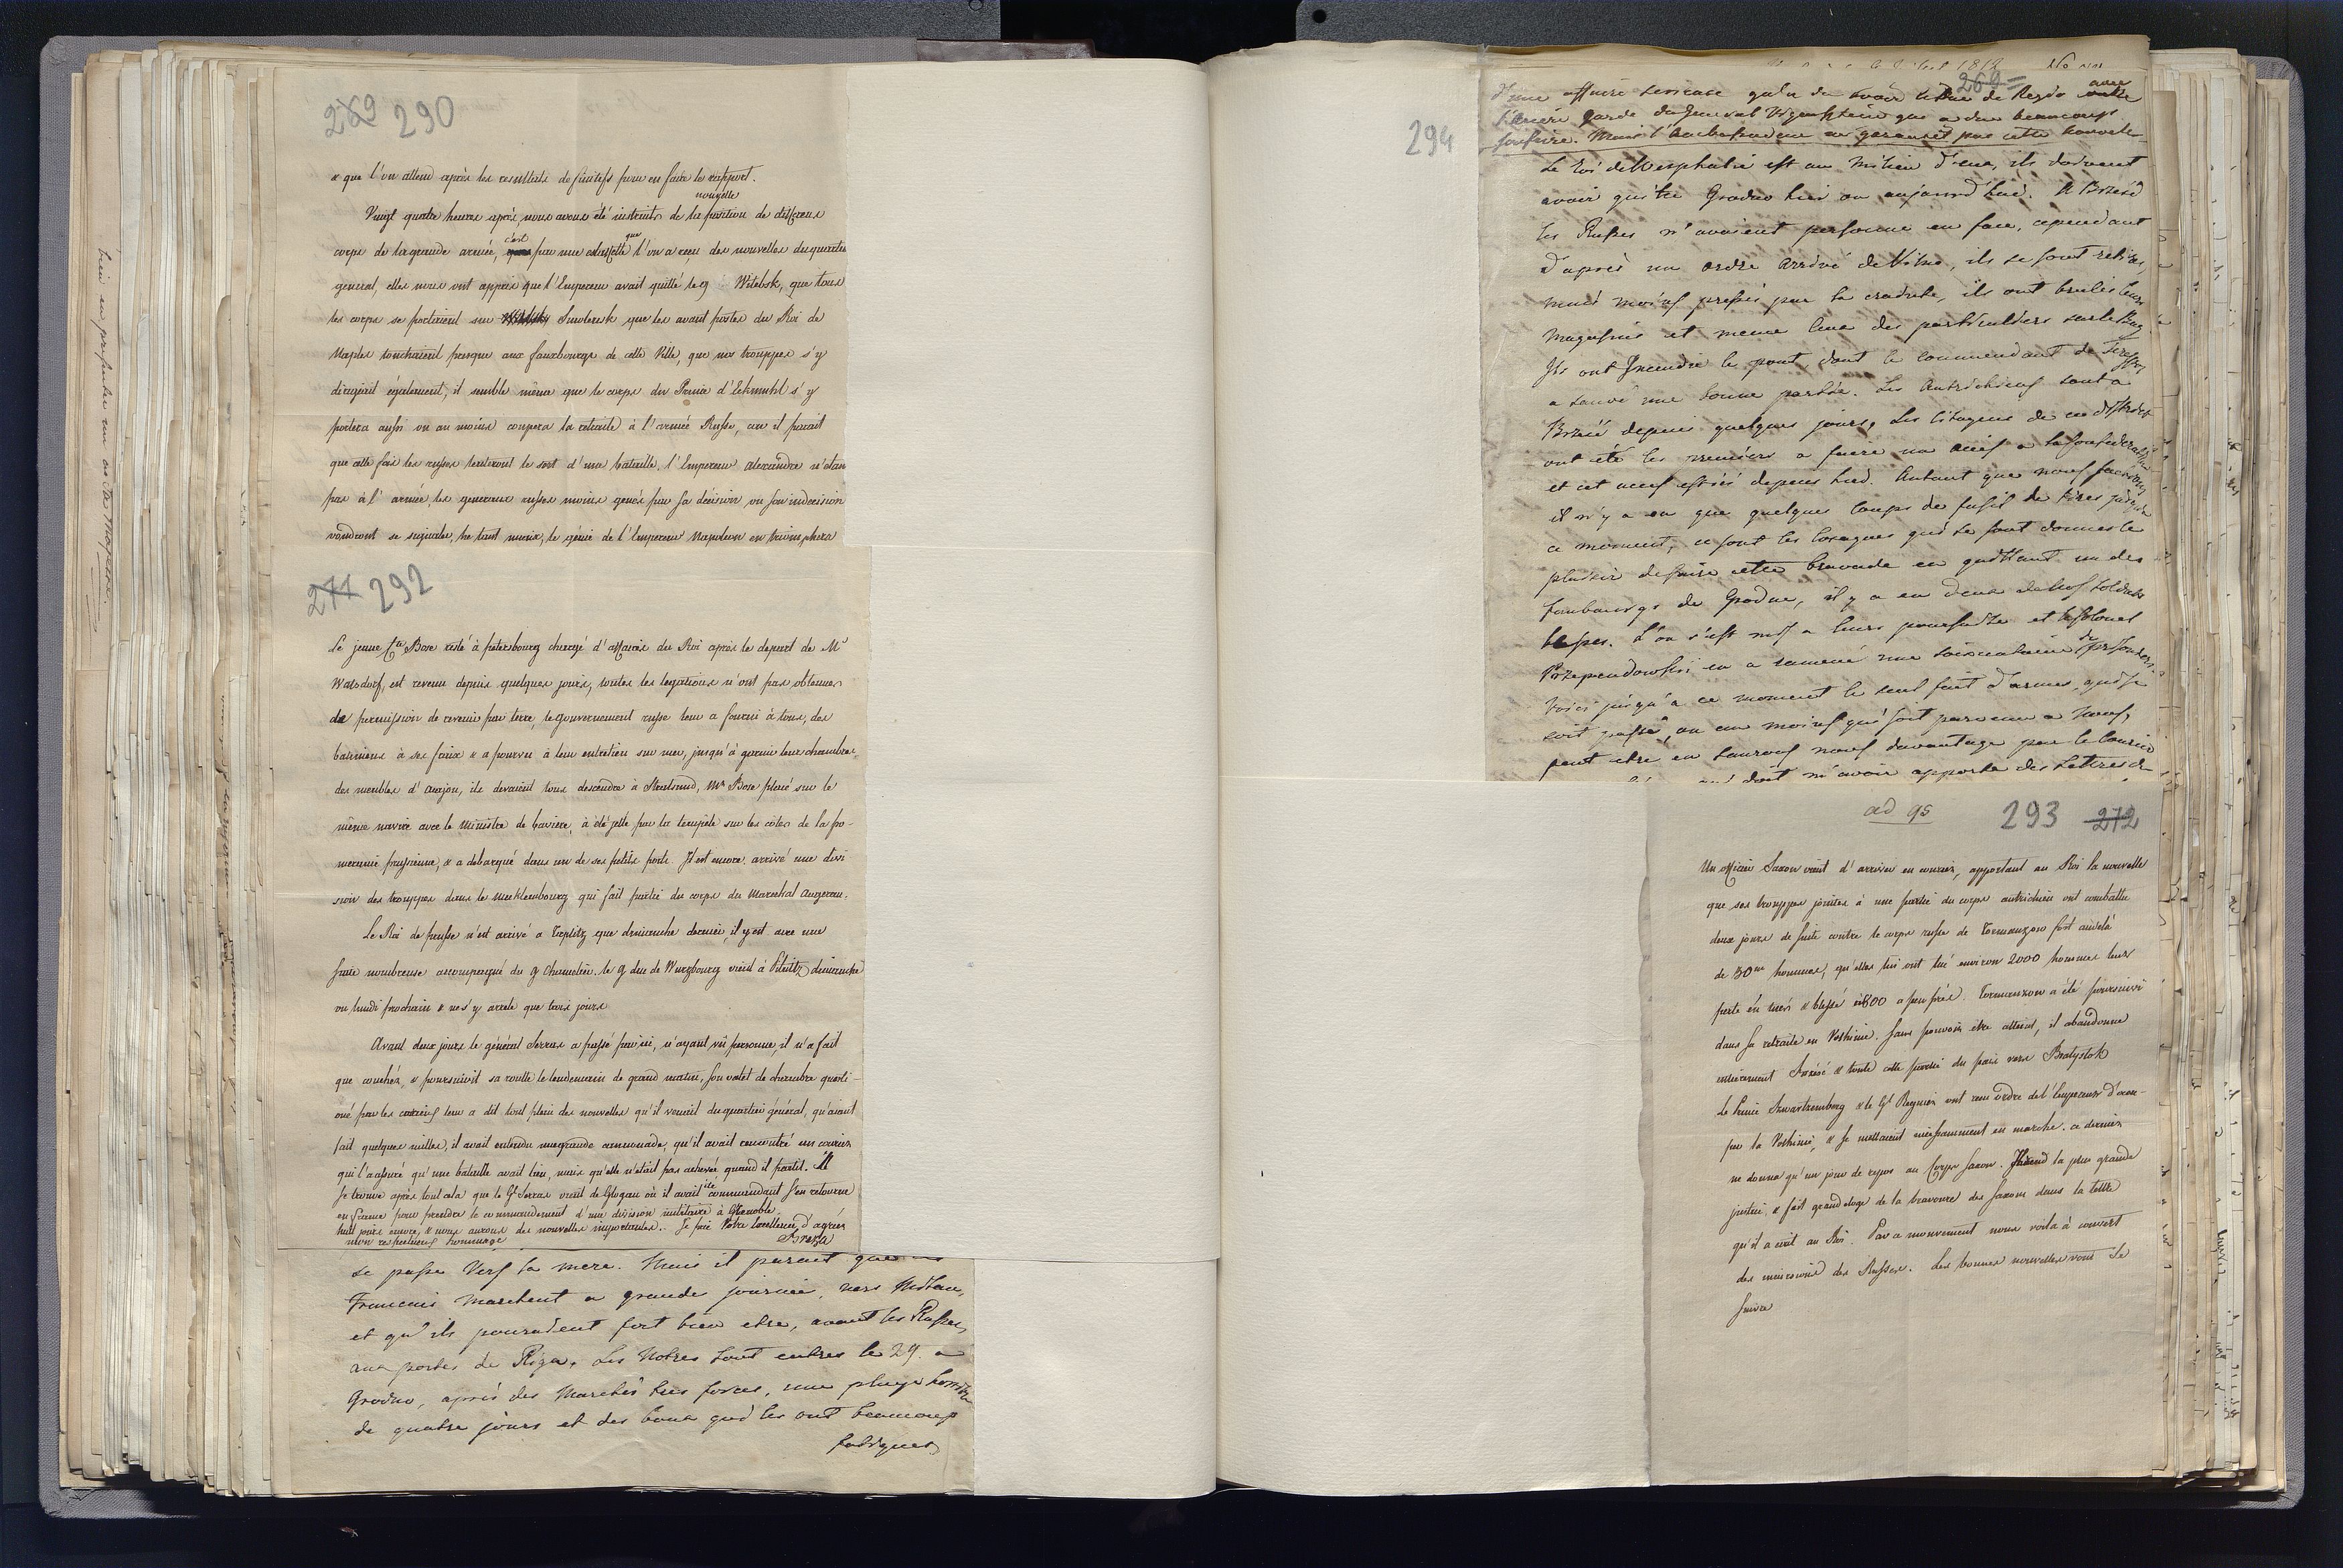 289 290
& que l'on attend après les resultats definitifs pour en faire le rapport.
nouvelle
Vingt quatre heures après nous avons été instruits de la position de differens
corps de la grande armée, c'est par une estaffette que l'on a reçu des nouvelles du quartier
general, elles nous ont appris que l'Empereur avait quitté le 9 Witebsk, que tous
les corps se portaient sur Smolensk que les avant postes du Roi de
Naples touchaient presque aux fauxbourgs de cette Ville, que nos trouppes s'y
dirigeait également, il semble même que le corps du Prince d'Ekmuhl s'y
portera aussi ou au moins coupera la retraite à l'armée Russe, car il parait
que cette fois les russes tenteront le sort d'une bataille. l'Empereur Alexandre n'étan
pas à l'armée, les generaux russes moins genés par sa decision ou son indecision
voudront se signaler, he tant mieux, le génie de l'Empereur Napoleon en triomphera
271 292
Le jeune Cte Bose resté à petersbourg chargé d'affaires du Roi après le depart de Mr
Watzdorf, est revenu depuis quelques jours, toutes les legations n'ont pas obtenue
de permission de revenir par terre, le gouvernement russe leur a fourni à tous, des
batimens à ses fraix & a pourvu à leur entretien sur mer, jusqu'à garnir leur chambre
des meubles d'acajou, ils devaient tous descendre à Stralsund, Mr Bose placé sur le
même navire avec le Ministre de baviere, à été jetté par la tempête sur les côtes de la po-
meranie prussienne, & a debarqué dans un de ses petits ports. Il est encore arrivé une divi
sion des trouppes dans le Mecklembourg qui fait partie du corps du Marechal Augereau.
Le Roi de prusse n'est arrivé a Toeplitz que dimanche dernier, il y est avec une
suite nombreuse accompagné du g Chancelier. le g duc de Wurzbourg vient à Pilnitz dimanche
ou lundi prochain & ne s'y arrete que trois jours
Avant deux jours le général Serras a passé par ici, n'ayant vu personne, il n'a fait
que coucher, & poursuivit sa routte le lendemain de grand matin, son valet de chambre questi-
oné par les curieux leur a dit tout plein des nouvelles qu'il venait du quartier général, qu'aiant
fait quelques milles, il avait entendu une grande cannonade, qu'il avait rencontré un courier
qui l'a assuré qu'une bataille avait lieu, mais qu'elle n'était pas achevée quand il partit. Il
se trouve après tout cela que le Gl Serras vient de Glogau où il avait été commendant s'en retourne
en france pour prendre le commandement d'une division militaire à Grenoble.
huit jours encore, & nous aurons des nouvelles importantes. Je prie Votre Excellence d'agréer
mon respectueux hommage
Breza
se passe vers la mere. Mais il parait que
Francais marchent a grande journée, vers Mittau,
et qu'ils pouraient fort bien etre, avant les Russes,
aux portes de Riga. Les Notres sont entres le 29. a
Grodno, après des Marches tres forces, une pluye horrible
de quatre jours et des boues qui les ont beaucoup
fatigues
294
269
d'une affaire serieuse qu'a du avoir le Duc de Regio avec
l'arriere garde du General Wigenstein qui a du beaucoup
souffrire. Mais l'Ambassadeur ne garantit pas cette nouvelle
Le Roi de Westphalie est au Milieu d'eux, ils doivent
avoir quitté Grodno hier ou aujourd'hui. A Brzesc
les Russes n'avaient personne en face, cependant
d'apres un ordre arrivé de Vilna, ils se sont retires,
mais moins pressés par la crainte, ils ont brulés leurs
Magasins et meme ceux des particuliers sur le Bug
Ils ont Incendie le pont, dont le commendant de
a sauvé une bonne partie. Les Autrichiens sont a
Brzesc depuis quelques jours. Les Citoyens de ce district
ont été les premiers a faire un acces a la Confederation
et cet acces est ici depuis hier. Autant que nous sachions
il n'y a eu que quelques coups de fusil de tires jusqu'a
ce moment, ce sont les Cosaques qui se sont donnes le
plaisir de faire cette bravade en quittant un des
fauxbourgs de Grodno, il y a eu deux de nos soldats
blesses. L'on s'est mis a leurs poursuite et le Colonel
Przependowski en a ramené une soixantaine de prisonniers.
Voici jusqu'a ce moment le seul fait d'armes, qui se
soit passé, ou au moins qui soit parvenu a nous,
peut etre en saurons nous davantage par le Courier
doit m'avoir apporte des Lettres de
ad 95 293 272
Un officier Saxon vient d'arriver en courier, apportant au Roi la nouvelle
que ses trouppes jointes à une partie du corps autrichien ont combattu
deux jours de suite contre le corps russe de Tormanzow fort audelà
de 30m hommes, qu'elles lui ont tué environ 2000 hommes leur
perte en tués & blessé à 800 a peu près. Tormanzow a été poursuivi
dans sa retraite en Volhinie. Sans pouvoir être atteint, il abandonne
entierement Brzesc & toute cette partie du pais vers Bialystok
Le Prince Szwartzemberg & le Gl Regnier ont reçu ordre de l'Empereur d'occu-
per la Volhinie, & se mettaient incessamment en marche. ce dernier
ne donna qu'un jour de repos au Corps Saxon. Il rend la plus grande
justice, & fait grand eloge de la bravoure des Saxons dans la lettre
qu'il a ecrit au Roi. Par ce mouvement nous voila à couvert
des incursions des Russes. Les bonnes nouvelles vont se
suivre